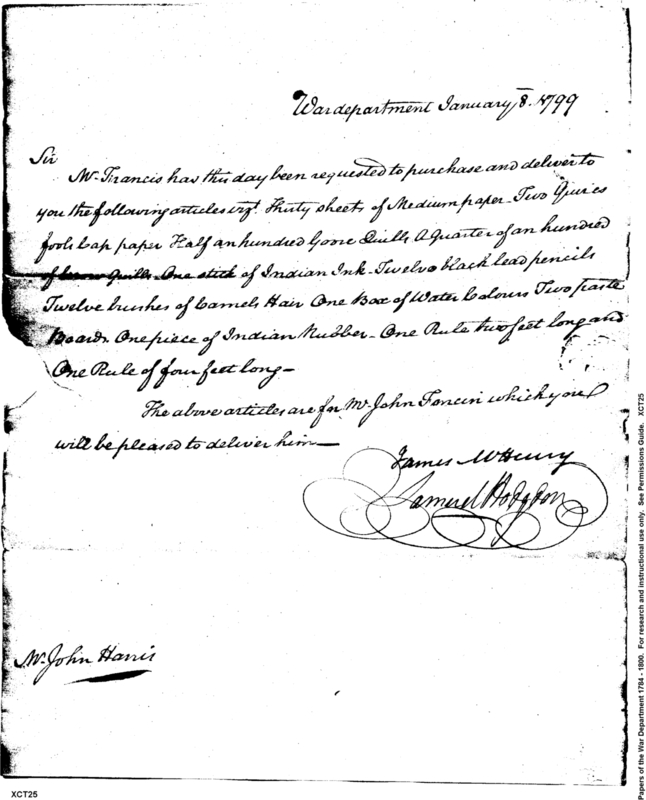 Wardepartment January 8. 1799
Sir
Mr. Francis has this day been requested to purchase and deliver to
you the following articles vizt. Thirty sheets of Medium paper - Two Quires
fools Cap paper Half an hundred Goose Quills A quarter of an hundred
of Crow Quills One stick of Indian Ink - Twelve black lead pencils
Twelve brushes of Camels Hair One Box of Water Colours Two paste
Boards One piece of Indian Rubber - One Rule two feet long and
One Rule of four feet long -
The above articles are for Mr. John Foncin which you
will be pleased to deliver him -
James McHenry
Samuel Hodgdon
Mr. John Harris
XCT25
Papers of the War Department 1784 - 1800. For research and instructional use only. See Permissions Guide. XCT25